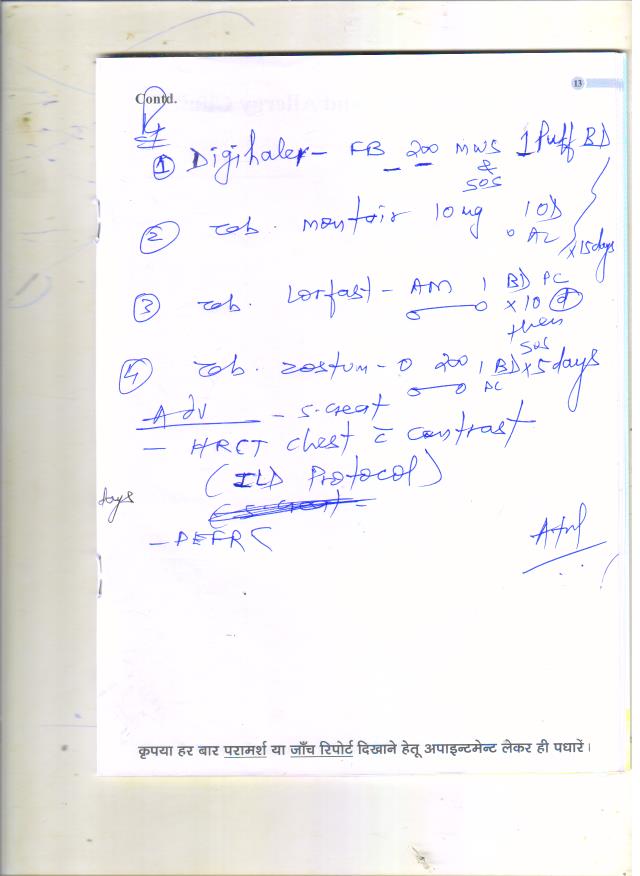 13
Contd.
① Digihaler - FB 200 mws 1 Puff BD
& SOS
② Tab. Montair 10 mg 1 OD
x 15 days
③ Tab. Lorfast - AM 1 BD PC
x 10 d
then
SOS
④ Tab. Zostum - O 200 1 BD x 5 days
AC
Adv - S. Creat
- HRCT chest c̄ contrast
(ILD Protocol)
days
- PEFR
कृपया हर बार परामर्श या जाँच रिपोर्ट दिखाने हेतू अपाइन्टमेन्ट लेकर ही पधारें।